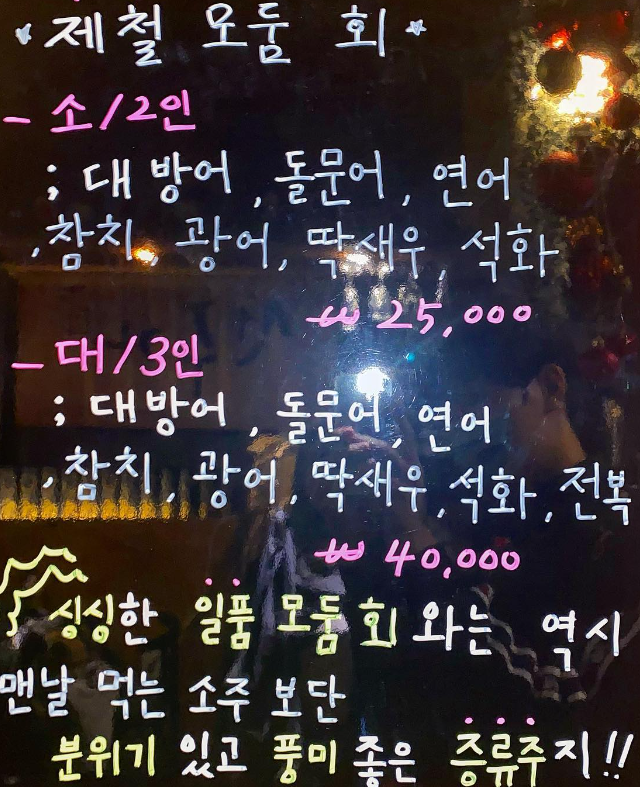 제철 모둠 회
- 소/2인
; 대방어, 돌문어, 연어
, 참치, 광어, 딱새우, 석화
₩ 25,000
- 대/3인
; 대방어, 돌문어, 연어
, 참치, 광어, 딱새우, 석화, 전복
₩ 40,000
싱싱한 일품 모둠회 와는 역시
맨날 먹는 소주 보단
분위기 있고 풍미 좋은 증류주지!!